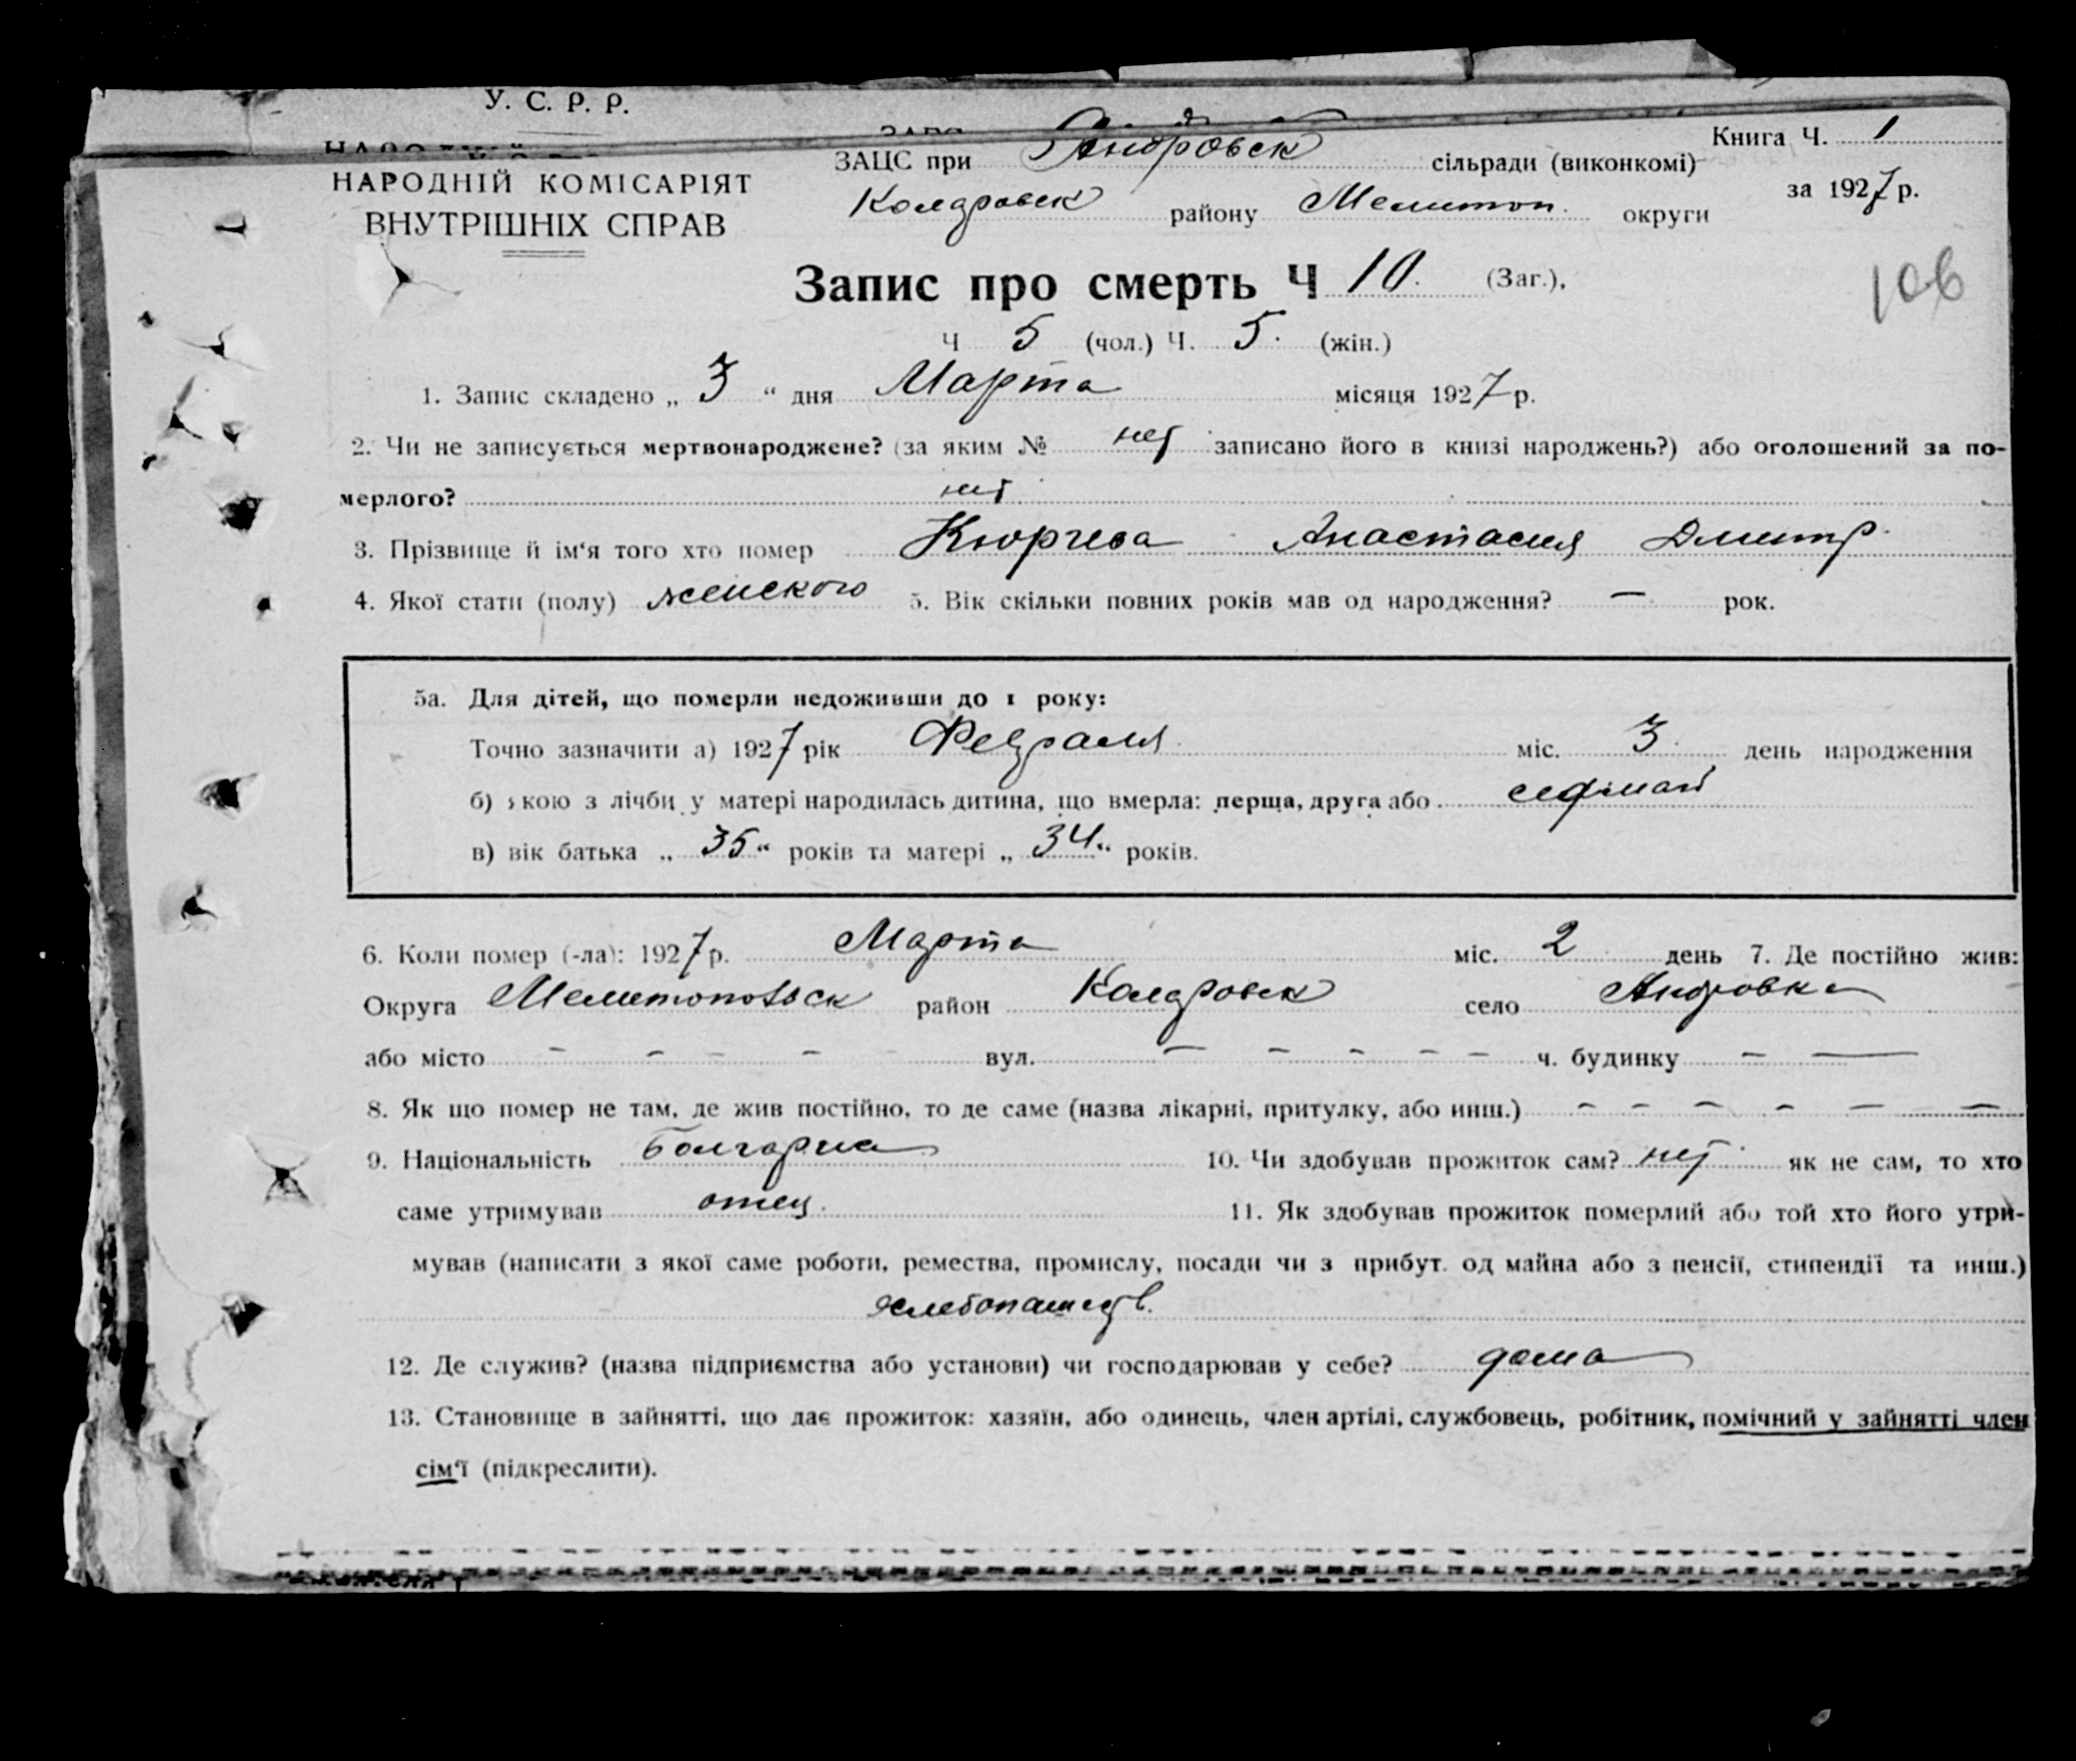 У. С. Р. Р.
Книга Ч. 1
НАРОДНІЙ КОМІСАРІЯТ
ВНУТРІШНІХ СПРАВ
ЗАЦС при Андровск сільради (виконкомі)
за 1927 р.
району Мелитоп. округи
Запис про смерть Ч 10. (Заг.),
106
Ч 5 (чол.) Ч. 5. (жін.)
1. Запис складено „ 3 “ дня Марта місяця 1927 р.
2. Чи не записується мертвонароджене? (за яким № нет записано його в книзі народжень?) або оголошений за по-
мерлого? нет
3. Прізвище й ім‘я того хто помер Кюргева Анастасия Дмитр.
4. Якої стати (полу) женского 5. Вік скільки повних років мав од народження? — рок.
5а. Для дітей, що померли недоживши до 1 року:
Точно зазначити а) 1927 рік Февраля міс. 3 день народження
б) якою з лічби у матері народилась дитина, що вмерла: перша, друга або
в) вік батька „ 35 “ років та матері „ 34 “ років.
6. Коли помер (-ла): 1927 р. Марта міс. 2 день 7. Де постійно жив:
Округа Мелитопольск район село Андровка
або місто – – – – вул. – – – – – ч. будинку – —
8. Як що помер не там, де жив постійно, то де саме (назва лікарні, притулку, або инш.) – – – – – –
9. Національність болгарка 10. Чи здобував прожиток сам? нет як не сам, то хто
саме утримував отец. 11. Як здобував прожиток померлий або той хто його утри-
мував (написати з якої саме роботи, ремества, промислу, посади чи з прибут. од майна або з пенсії, стипендії та инш.)
хлебопашеств.
12. Де служив? (назва підприємства або установи) чи господарював у себе? дома
13. Становище в зайнятті, що дає прожиток: хазяїн, або одинець, член артілі, службовець, робітник, помічний у зайнятті член
сім‘ї (підкреслити).